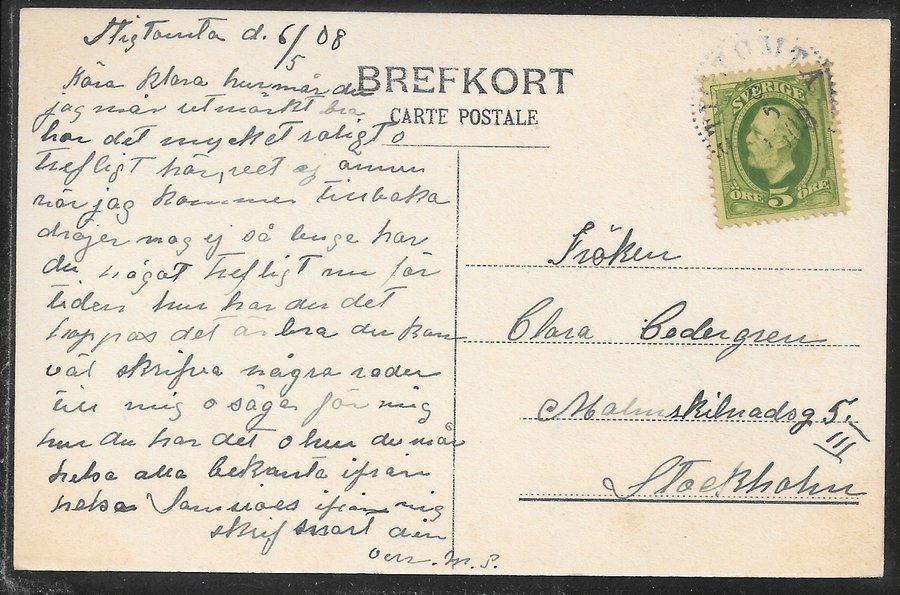 Stigtomta d. 6/5 08
Kära Klara hur mår du
jag mår utmärkt bra
har det mycket roligt o
trefligt här, vet ej ännu
när jag kommer tillbaka
dröjer nog ej så länge har
du något trefligt nu för
tiden hur har du det
hoppas det är bra du kan
väl skrifva några rader
till mig o säga för mig
hur du har det o hur du mår
helsa alla bekanta ifrån
helsa ifrån mig
skrif snart din
vän M. S.
BREFKORT
CARTE POSTALE
STIGTOMTA
SVERIGE
ÖRE 5 ÖRE
Fröken
Clara Cedergren
Malmskilnadsg 5.
III
Stockholm